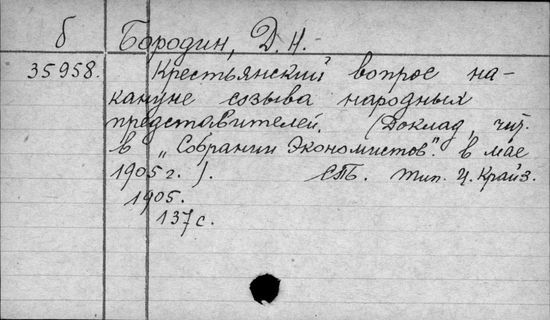 б Бородин, Д. Н.
35958. Крестьянский вопрос на-
кануне созыва народных
представителей. (Доклад, чит.
в „Собрании Экономистов". в мае
1905 г.). СПБ. тип. Ц. Крайз.
1905.
137 с.